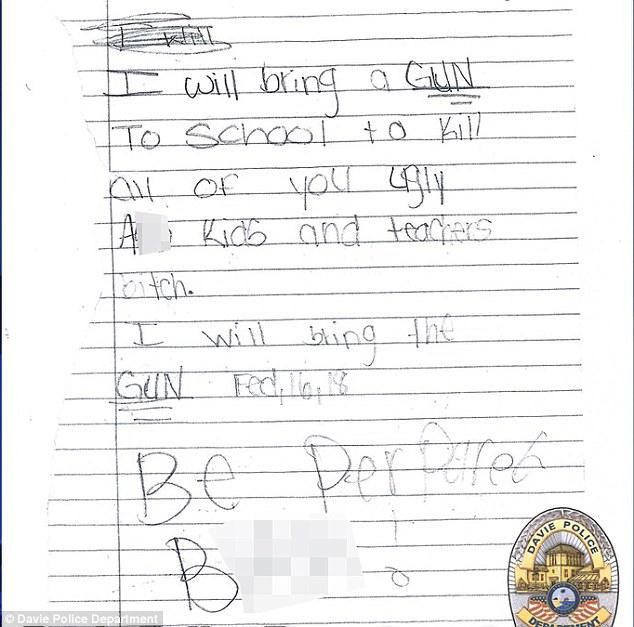 I will
I will bring a GUN
To School to Kill
All of you ugly
A Kids and teachers
bitch.
I will bring the
GUN Fed,16,18
Be Perpared
B
DAVIE POLICE
DEPARTMENT
© Davie Police Department